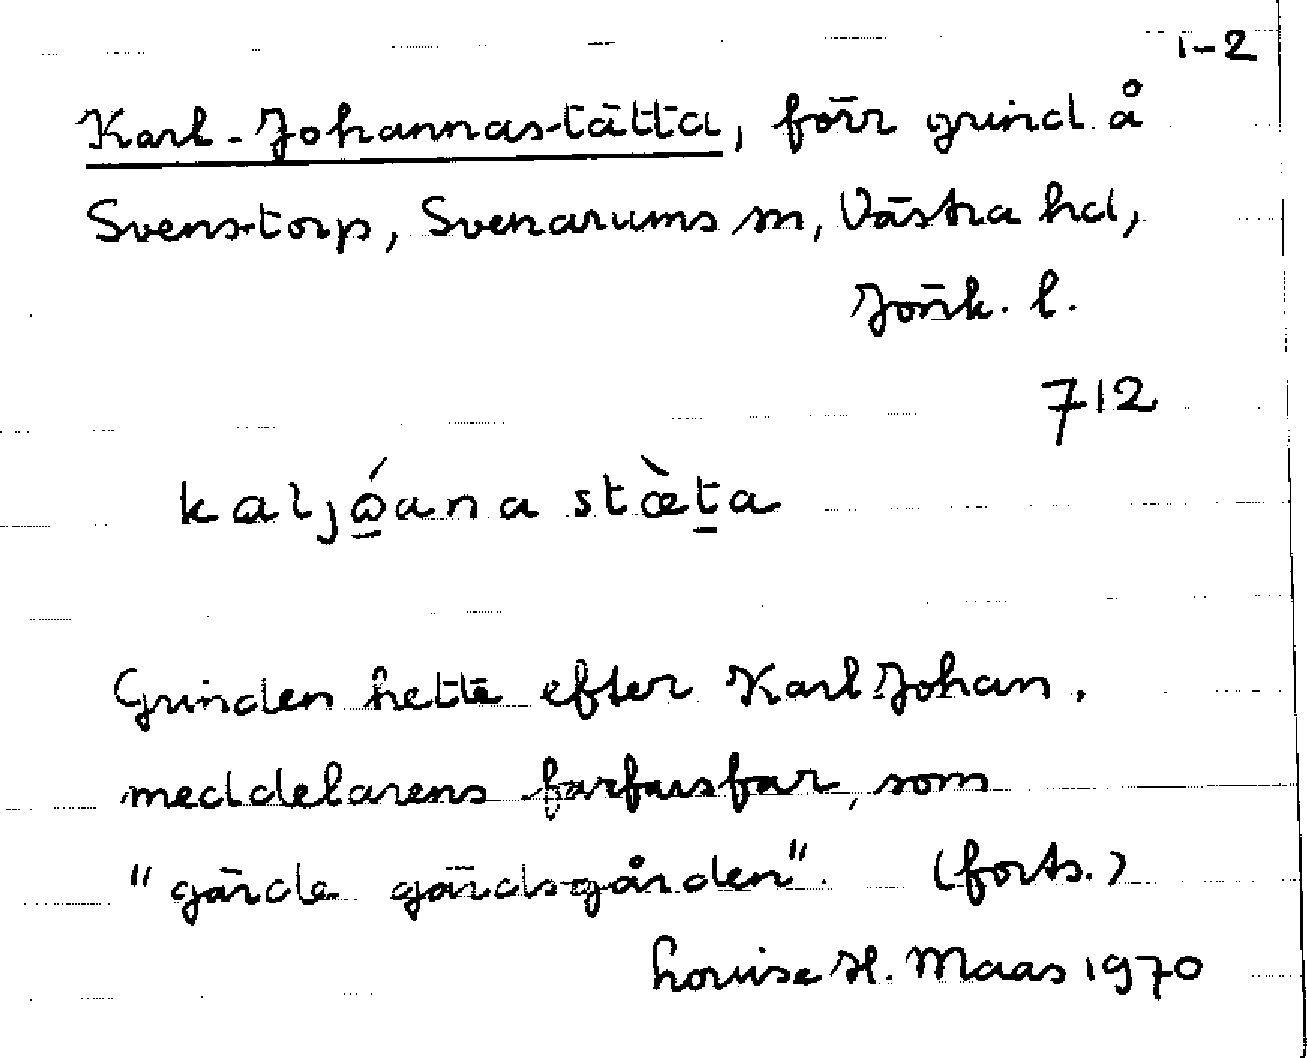 1-2
Karl-Johannastätta, förr grind å
Svenstorp, Svenarums sn, Västra hd,
Jönk. l.
712
kaljó̱ana stæ̀ṯa
Grinden hette efter Karl Johan,
meddelarens farfarsfar, som
"gärde gärdsgården". (forts.)
Louise H. Maas 1970